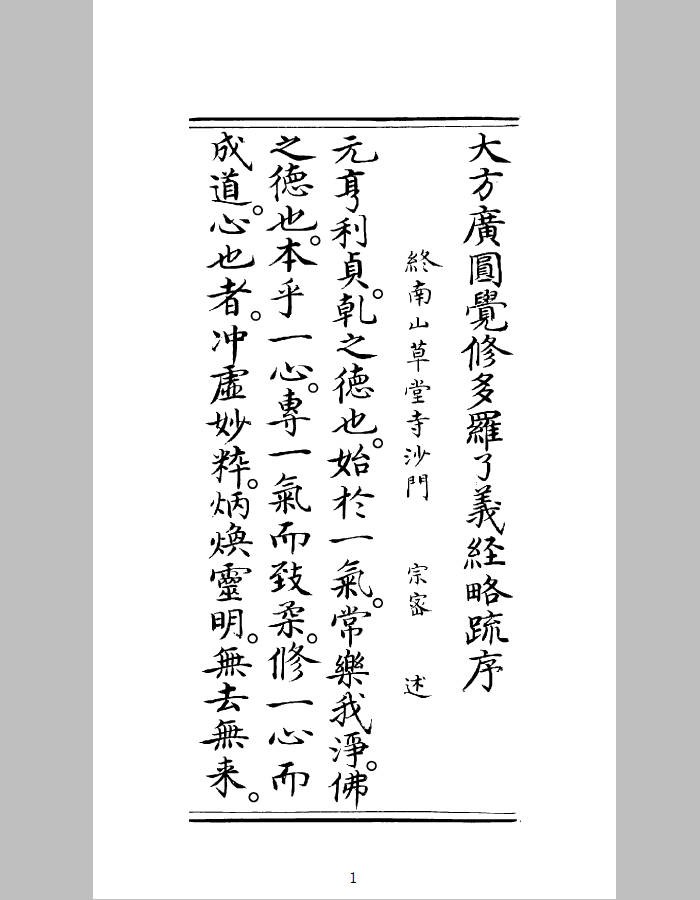 大方廣圓覺修多羅了義経略疏序
終南山草堂寺沙門　宗密　述
元亨利貞。乹之德也。始於一氣。常樂我淨。佛
之德也。本乎一心。專一氣而致柔。修一心而
成道。心也者。冲虛妙粹。炳煥靈明。無去無来。
1